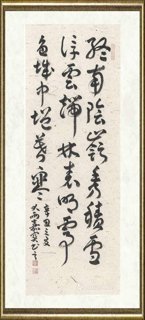 終南陰嶺秀積雪
浮雲端林表明霽
色城中增暮寒